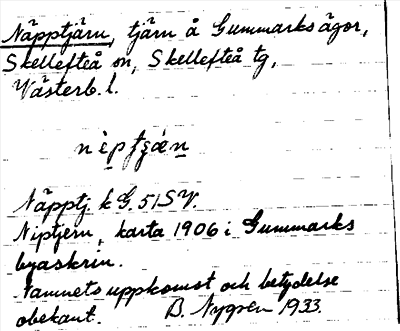 Näpptjärn, tjärn å Gummarks ägor,
Skellefteå sn, Skellefteå tg,
Västerb. l.
Näpptj k G. 51 SV.
Niptjern, karta 1906 i Gummarks
byaskrin.
Namnets uppkomst och betydelse
obekant. B. Nygren 1933.